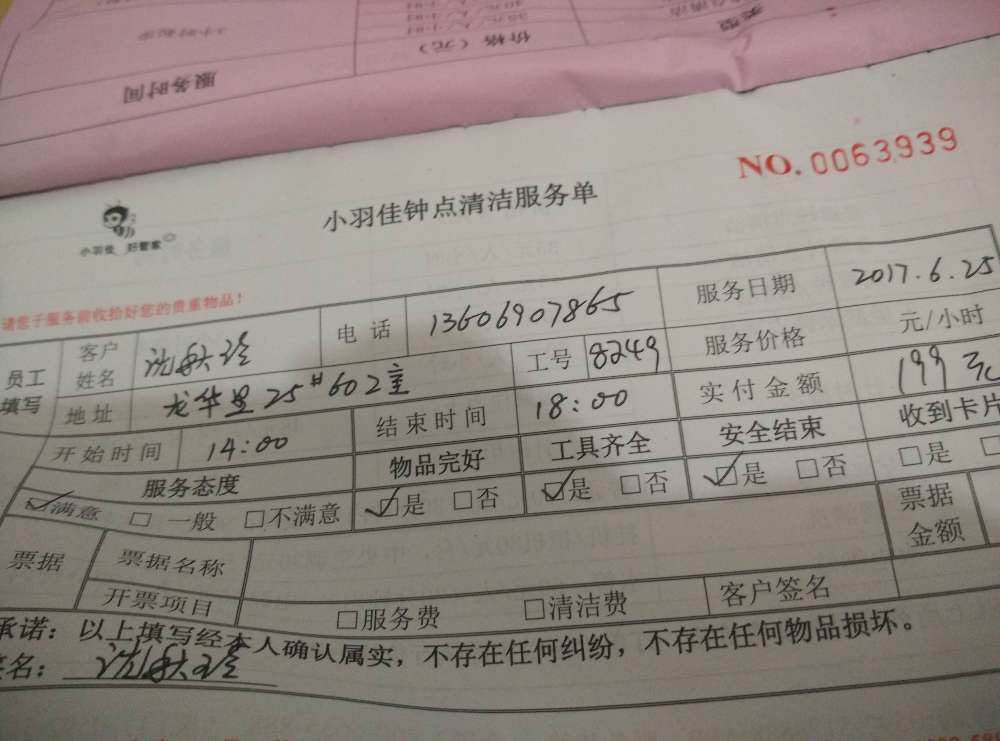 服务时间
价格（元）
类型
NO.0063939
小羽佳钟点清洁服务单
小羽佳 好管家
请您于服务前收拾好您的贵重物品！
员工填写
客户姓名
电话 13606907865
服务日期 2017.6.25
地址 龙华里25#602室
工号 8249
服务价格 元/小时
开始时间 14:00
结束时间 18:00
实付金额 199元
服务态度 物品完好 工具齐全 安全结束 收到卡片
☑满意 □一般 □不满意 ☑是 □否 ☑是 □否 ☑是 □否 □是 □
票据 票据名称 票据金额
开票项目 □服务费 □清洁费 客户签名
承诺：以上填写经本人确认属实，不存在任何纠纷，不存在任何物品损坏。
签名：